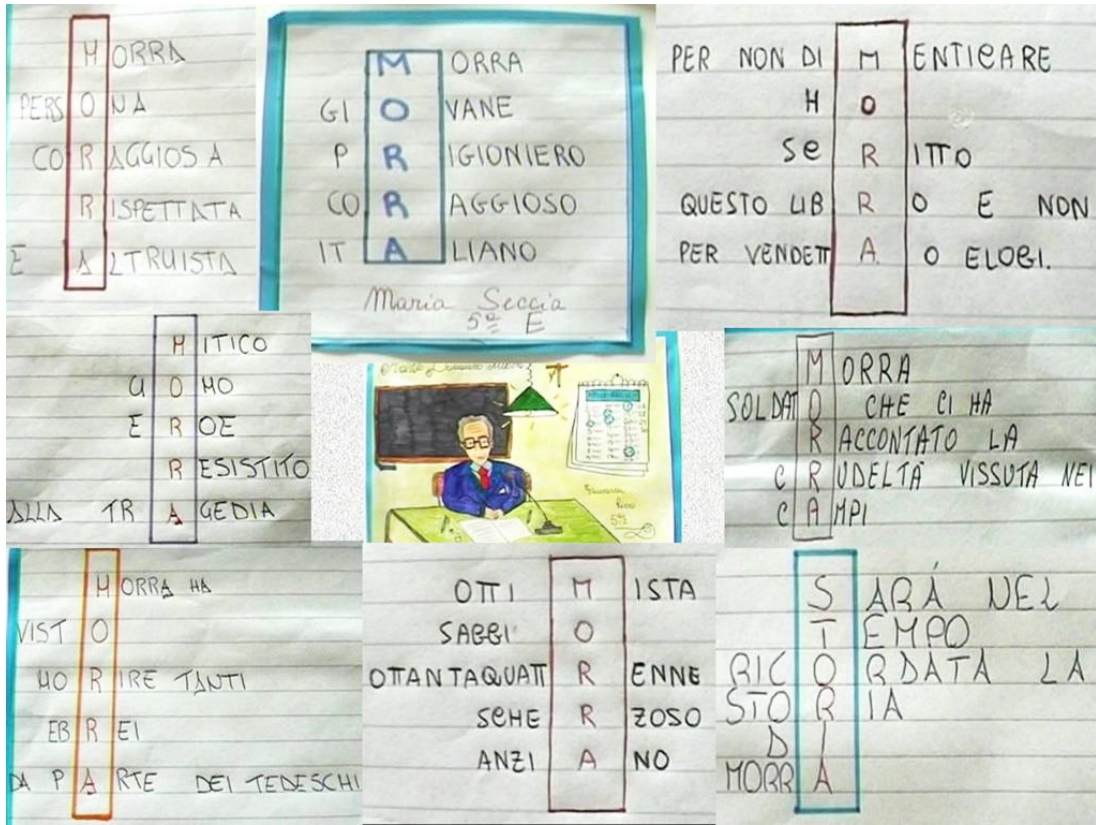 MORRA
PERSONA
CORAGGIOSA
RISPETTATA
E ALTRUISTA
MORRA
GIOVANE
PRIGIONIERO
CORAGGIOSO
ITALIANO
Maria Seccia
5ª E
PER NON DIMENTICARE
HO
SCRITTO
QUESTO LIBRRO E NON
PER VENDETTA O ELOGI.
MITICO
UOMO
EROE
RESISTITO
ALLA TRAGEDIA
5ª E
MORRA
SOLDATO CHE CI HA
RACCONTATO LA
CRUDELTÀ VISSUTA NEI
CAMPI
MORRA HA
VISTO
MORIRE TANTI
EBREI
DA PARTE DEI TEDESCHI
OTTIMISTA
SAGGIO
OTTANTAQUATTRENNE
SCHERZOSO
ANZIANO
SARÁ NEL
TEMPO
RICORDATA LA
STORIA
DI
MORRA